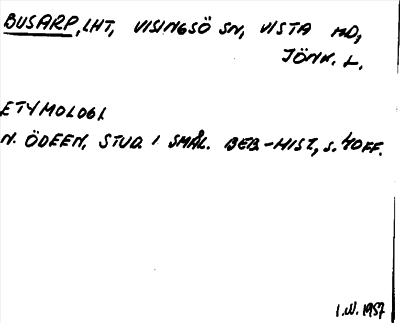 BUSARP, LHT, VISINGSÖ SN, VISTA HD,
JÖNK. L.
ETYMOLOGI.
N. ÖDEEN, STUD. I SMÅL. BEB.-HIST, S. 40FF.
I.W. 1957